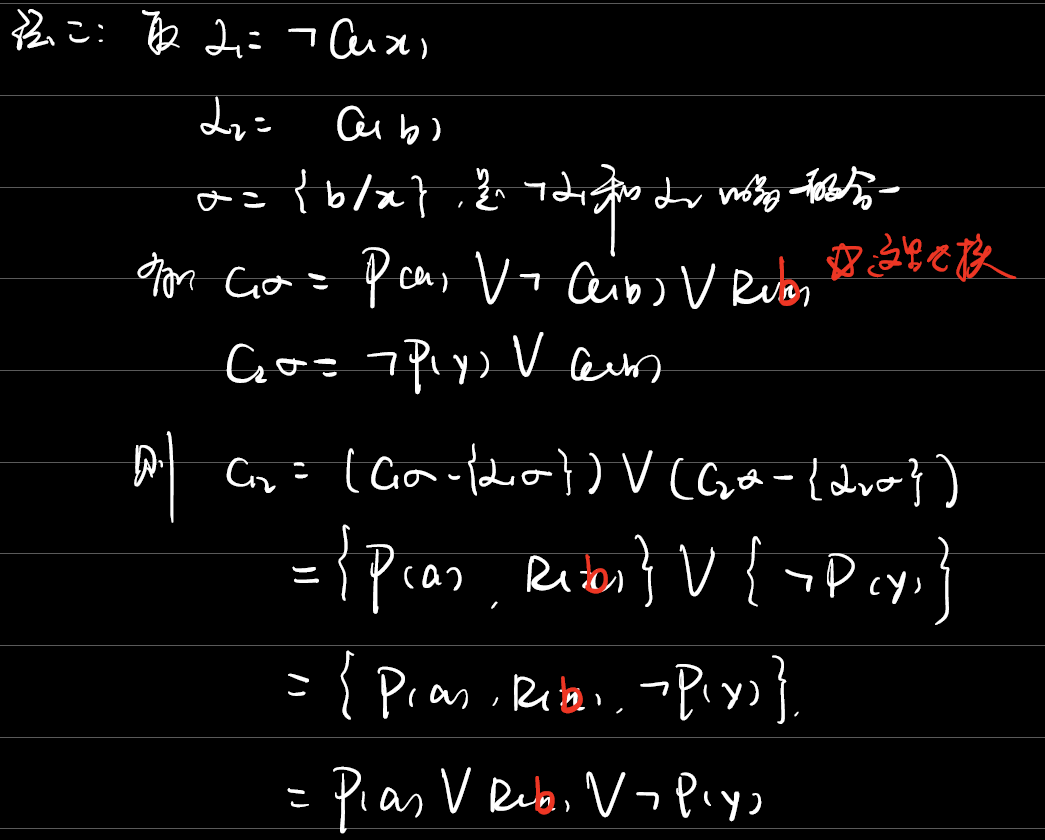 法二: 取 L₁= ¬Q(x)
L₂= Q(b)
σ= {b/x}, 是 ¬L₁和 L₂ 的最一般合一
则 C₁σ = P(a) ∨ ¬Q(b) ∨ R(b) 这里也换
C₂σ= ¬P(y) ∨ Q(b)
则 C₁₂ = (C₁σ-{L₁σ}) ∨ (C₂σ-{L₂σ})
={P(a), R(b)} ∨ {¬P(y)}
={P(a), R(b), ¬P(y)}.
= P(a) ∨ R(b) ∨ ¬P(y)